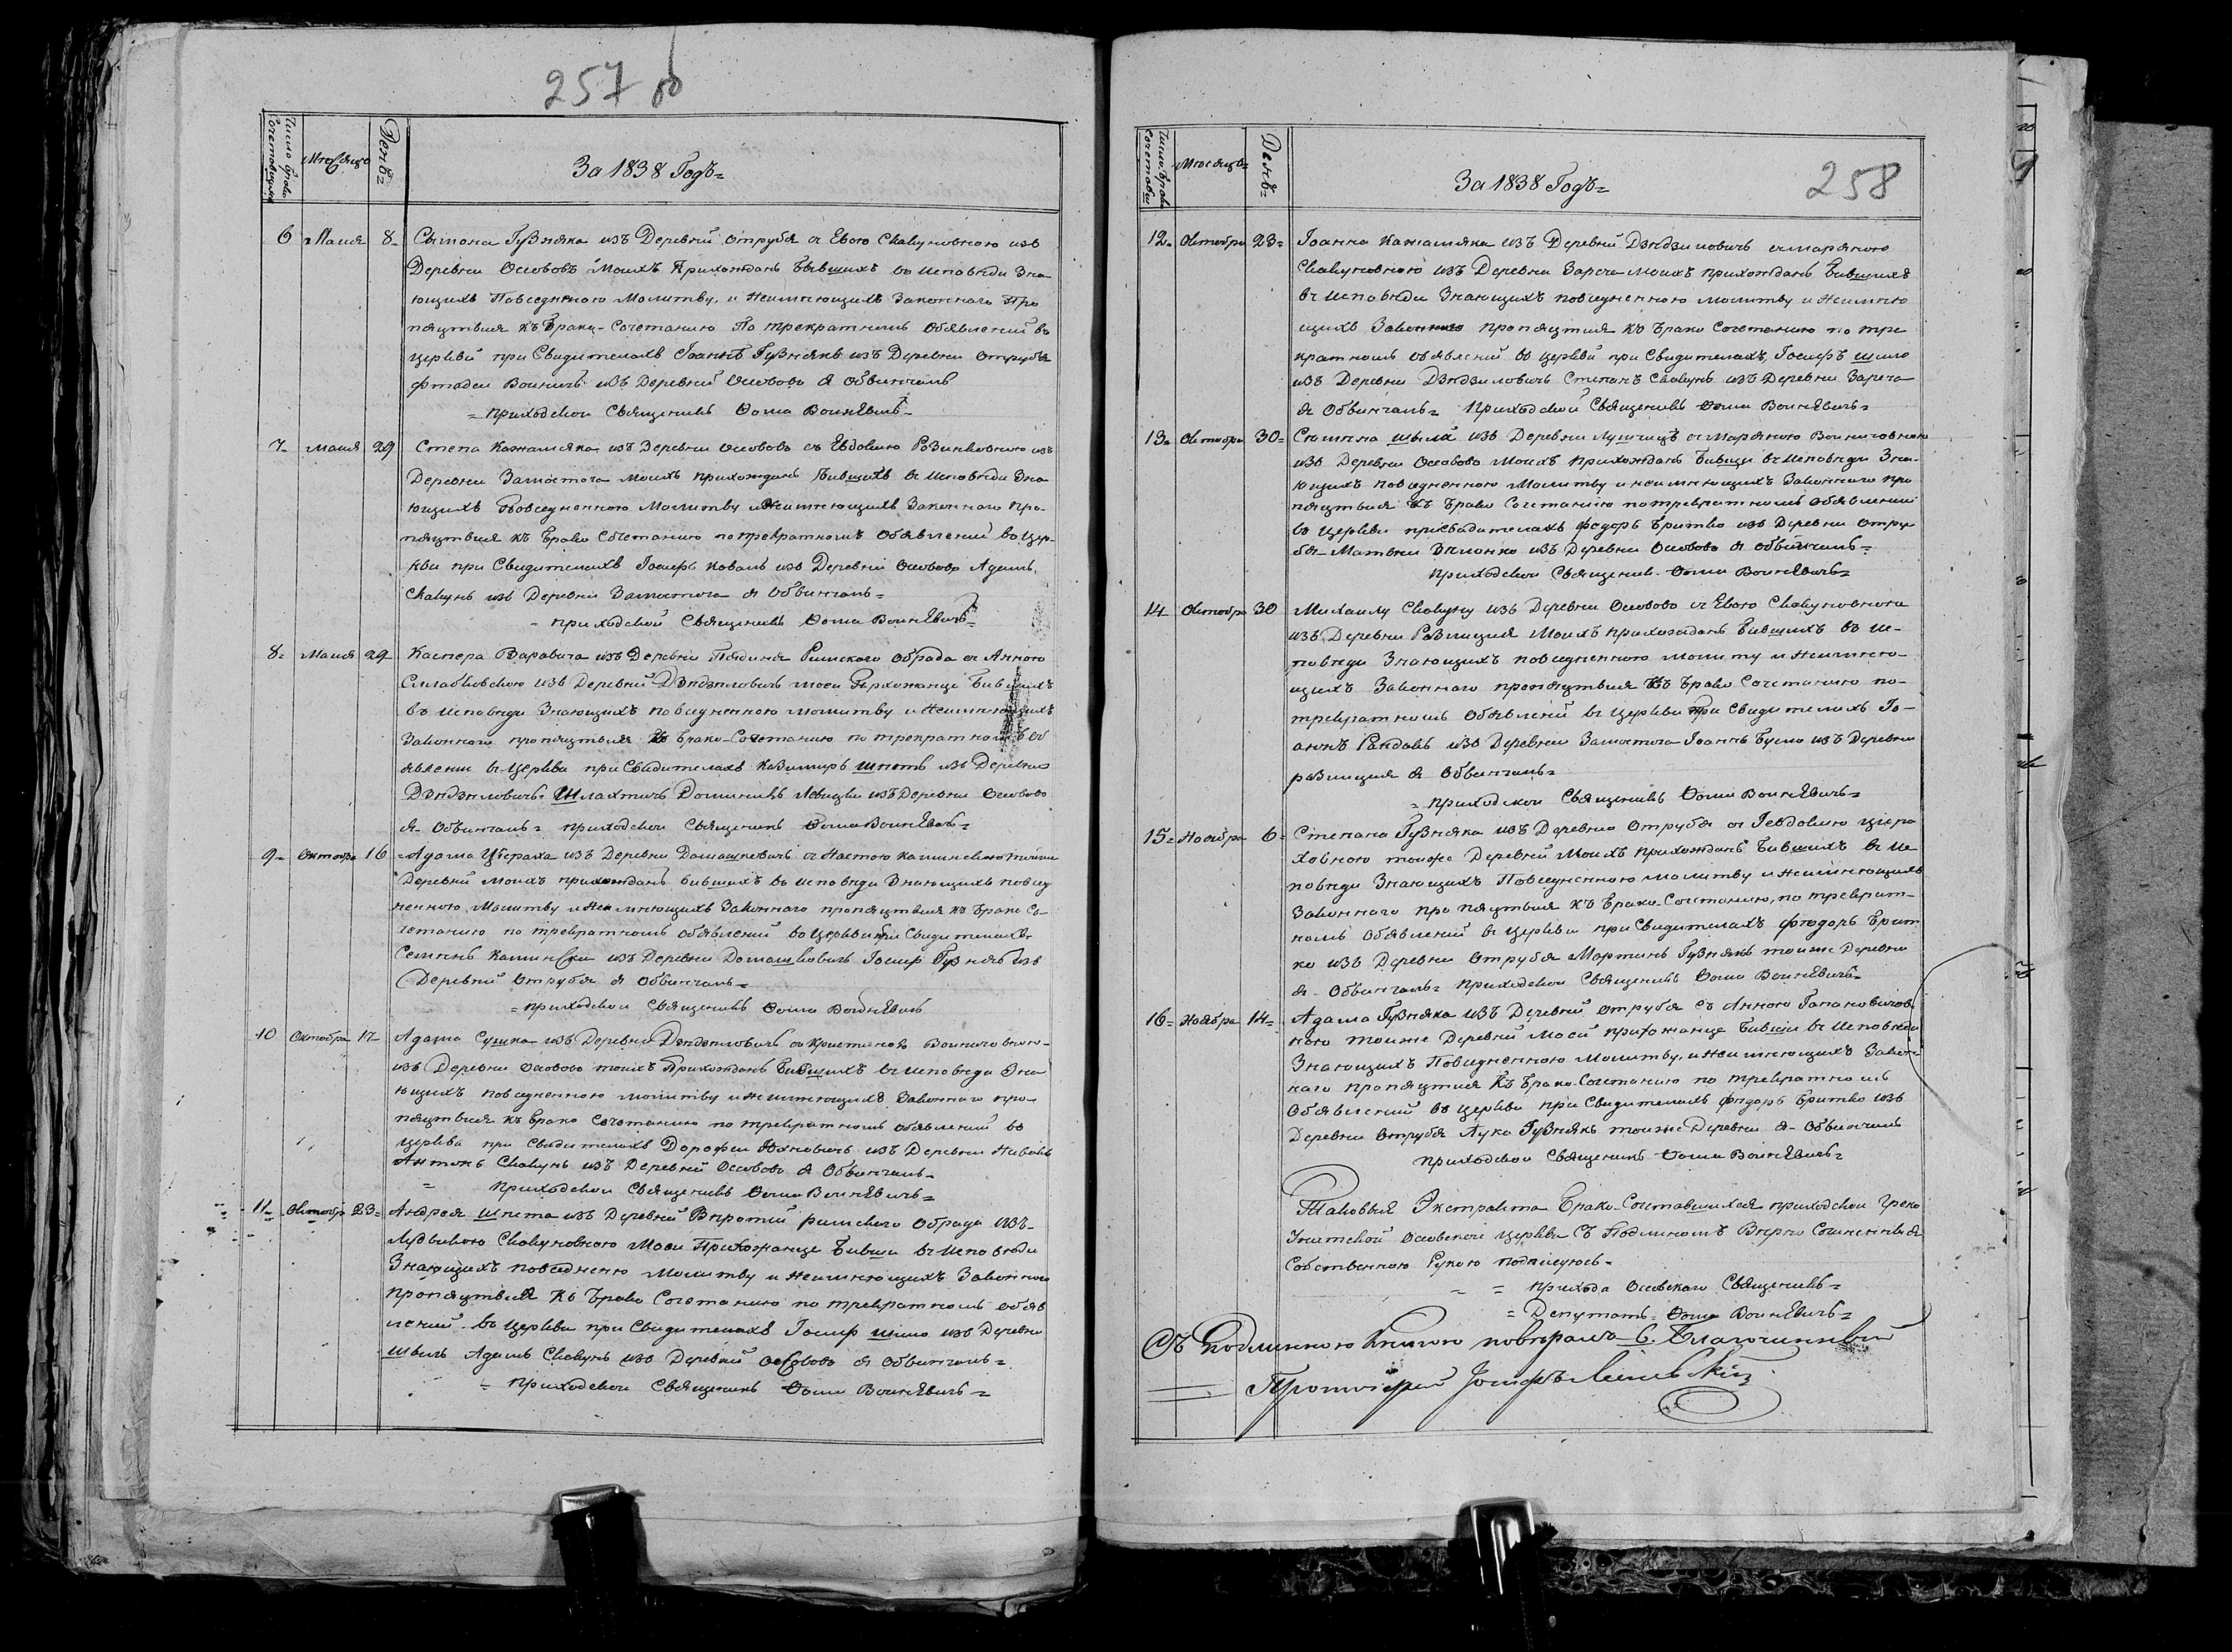 257 об
Число Брако Сочетовшихся
Мѣсяцъ
День=
За 1838 Годъ=
6 Маия 8= Сымона Гузняка изъ Деревни Отрубя съ Евою Скакуновною изъ
Деревни Осовово Моихъ Прихожанъ Бывшихъ во исповѣди Зна
ющихъ Повседневною Молитву, и Неимѣющихъ Законнаго Пре
пяцтвия Къ Брако-Сочетанию По трекратномъ Обявлений въ
Церквй при Свидителахъ Іоаннъ Гузнякъ изъ Деревни Отрубя
Фтадеи Воиничь изъ Деревнй Осовово Я Обвинчалъ
= Приходскои Священникъ Фома Воинѣвичъ=
7= Маия 29 Степа Кажамяка изъ Деревни Осовово съ Евдокию изъ
Деревни Замосточа моихъ прихожанъ Бившихъ въ исповѣди Зна
ющихъ Повседненною Молитву и Неимѣющихъ Законнаго пре-
пяцтвия Къ Брако Сочетанию по трекратномъ Обявлений во Цер-
кви при Свидителахъ Іосифъ Коваль изъ Деревнй Осовово Адамъ
Скакунъ изъ Деревни Замосточа Я Обвинчалъ=
= приходскои Священникъ Фома Воинѣвичъ=
8= Маия 29 Каспера Варавича изъ Деревни Римского Обрада съ Анною
изъ Деревнй моеи Прихожанце Бившихъ
въ исповѣди Знающихъ повседненною молитву и Неимѣющихъ
Законнаго препяцтвия Ко Брако-Сочетанию по трекратномъ Об
явлении в Церкви при Свидителахъ Казимиръ Шпетъ изъ Деревни
Шлахтичъ Доминикъ изъ Деревни Осовово
Я= Обвинчалъ= приходскои Священникъ Фома Воинѣвичъ=
9= Октобра 16 =Адама Цѣраха изъ Деревни Домашкевичъ съ Настою тоижи
Деревнй моихъ прихожанъ бившихъ въ исповѣди Знающихъ повсед
ненною Молитву и Неимѣющихъ Законнаго препяцтвия къ Брако Со-
четанию по трекратномъ Обявлений во Церкви при Свидителахъ
Семенъ изъ Деревни Іосиф Гузнякъ изъ
Деревнй Отрубя я Обвинчалъ=
= приходскои Священникъ Фома Воинѣвичъ
10 Октобра 17= Адама Сушка изъ Деревни со Кристиною Воиничовною-
изъ Деревни Осовово моихъ Прихожанъ Бившихъ въ исповѣди Зна
ющихъ повседненною молитву и неимѣющихъ Законнаго пре-
пяцтвия къ Брако Сочетанию по трекратномъ Обявлений во
Церкви при Свидителахъ Дорофеи изъ Деревни
Антонъ Скакунъ изъ Деревнй Осовово Я Обвинчалъ-
= приходскои Священникъ Фома Воинѣвичъ=
11= Октобр 23= Андрея Шпета изъ Деревнй римского Обрада изъ-
Людвикою Скакуновною Моеи Прихожанце Бивши въ исповѣди
Знающихъ повседненю Молитву и Неимѣющихъ Законного
препяцтвия Ко Брако Сочетанию по трекратномъ обяв
лений въ Церкви при Свидителахъ Іосиф Шило изъ Деревни
Адамъ Скакунъ изъ Деревнй Осовово Я Обвинчалъ=
= приходскои Священникъ Фома Воинѣвичъ=
Число Брако Сочетовши
Мѣсяцъ=
День=
За 1838 Годъ=
258
12= Октобра 23= Іоанна Кажамяка изъ Деревнй съ Маряною
Скакуновною изъ Деревни Заречя моихъ прихожанъ Бившихъ
въ исповѣди Знающихъ повседненною молитву и Неимѣю
щихъ Законного препяцтия къ Брако Сочетанию по тре
кратномъ обявлений во Церквй при Свидителахъ, Іосифъ Шило
изъ Деревни Степанъ Скакунъ изъ Деревни Заречя
Я Обвинчалъ= Приходскои Священникъ Фома Воинѣвичъ=
13= Октобра 30= Симона изъ Деревни съ Маряною Воиничовною
изъ Деревни Осовово Моихъ прихожанъ Бивши въ исповѣди Зна-
ющихъ повседненною Молитву и неимѣющихъ Законнаго пре
пяцтвия Къ Брако Сочетанию потрекратномъ Обявлении
во Церкви присвидителахъ Федоръ Бритко изъ Деревни Отру
бя-Матвеи изъ Деревни Осовово Я обвинчалъ=
приходскои Священикъ Фома Воинѣвичъ=
14 Октобра 30 Михаилу Скакуну изъ Деревни Осовово съ Евою Скакуновною
изъ Деревни Моихъ прихожанъ Бившихъ въ ис-
повѣди Знающихъ повседненною молитву и Неимѣю-
щихъ Законнаго препяцтвия Къ Брако Сочетанию по-
трекратномъ Обявлений въ Церкви При Свидителахъ Іо-
аннъ изъ Деревни Замосточа Іоаннъ изъ Деревни
я Обвинчалъ=
= приходскои Священникъ Фома Воинѣвичъ=
15= Ноября 6= Степана Гузняка изъ Деревни Отрубя съ Гевдокию Цера
ховною тоиже Деревнй Моихъ прихожанъ Бившихъ въ ис
повѣди Знающихъ Повседненною молитву и неимѣющихъ
Законнаго препяцтвия Къ Брако-Сочетанию, по трекрат-
номъ Обявлений въ Церкви при Свидителахъ Фтодоръ Брит
ко изъ Деревни Отрубя Мартинъ Гузнякъ тоиже Деревни
Я Обвинчалъ= приходскои Священникъ Фома Воинѣвичъ=
16= Ноября 14= Адама Гузняка изъ Деревнй Отрубя съ Анною Гапановичов
ною тоиже Деревнй Моей прихожанце Бивши въ исповѣди
Знающихъ Повседненною Молитву, и неимѣющихъ Закон
наго препяцтия Къ Брако-Сочетанию по трекратномъ
Обявлений во Церкви при Свидителахъ Фтдоръ Бритко изъ
Деревни Отрубя Лука Гузнякъ тоиже Деревни Я- Обвинчалъ
приходскои Священникъ Фома Воинѣвичъ=
Таковыя Экстракта Брако-Сочетавшихся приходскои Греко
Унитской Осовской Церкви Съ Подлиномъ Вѣрно
Собственною Рукою подписуюсь=
= = прихода Осовскаго Священникъ=
= Депутатъ= Фома Воинѣвичъ=
Съ Подлинною Книгою повѣрялъ Благочинный
Протоіерей Іосифъ